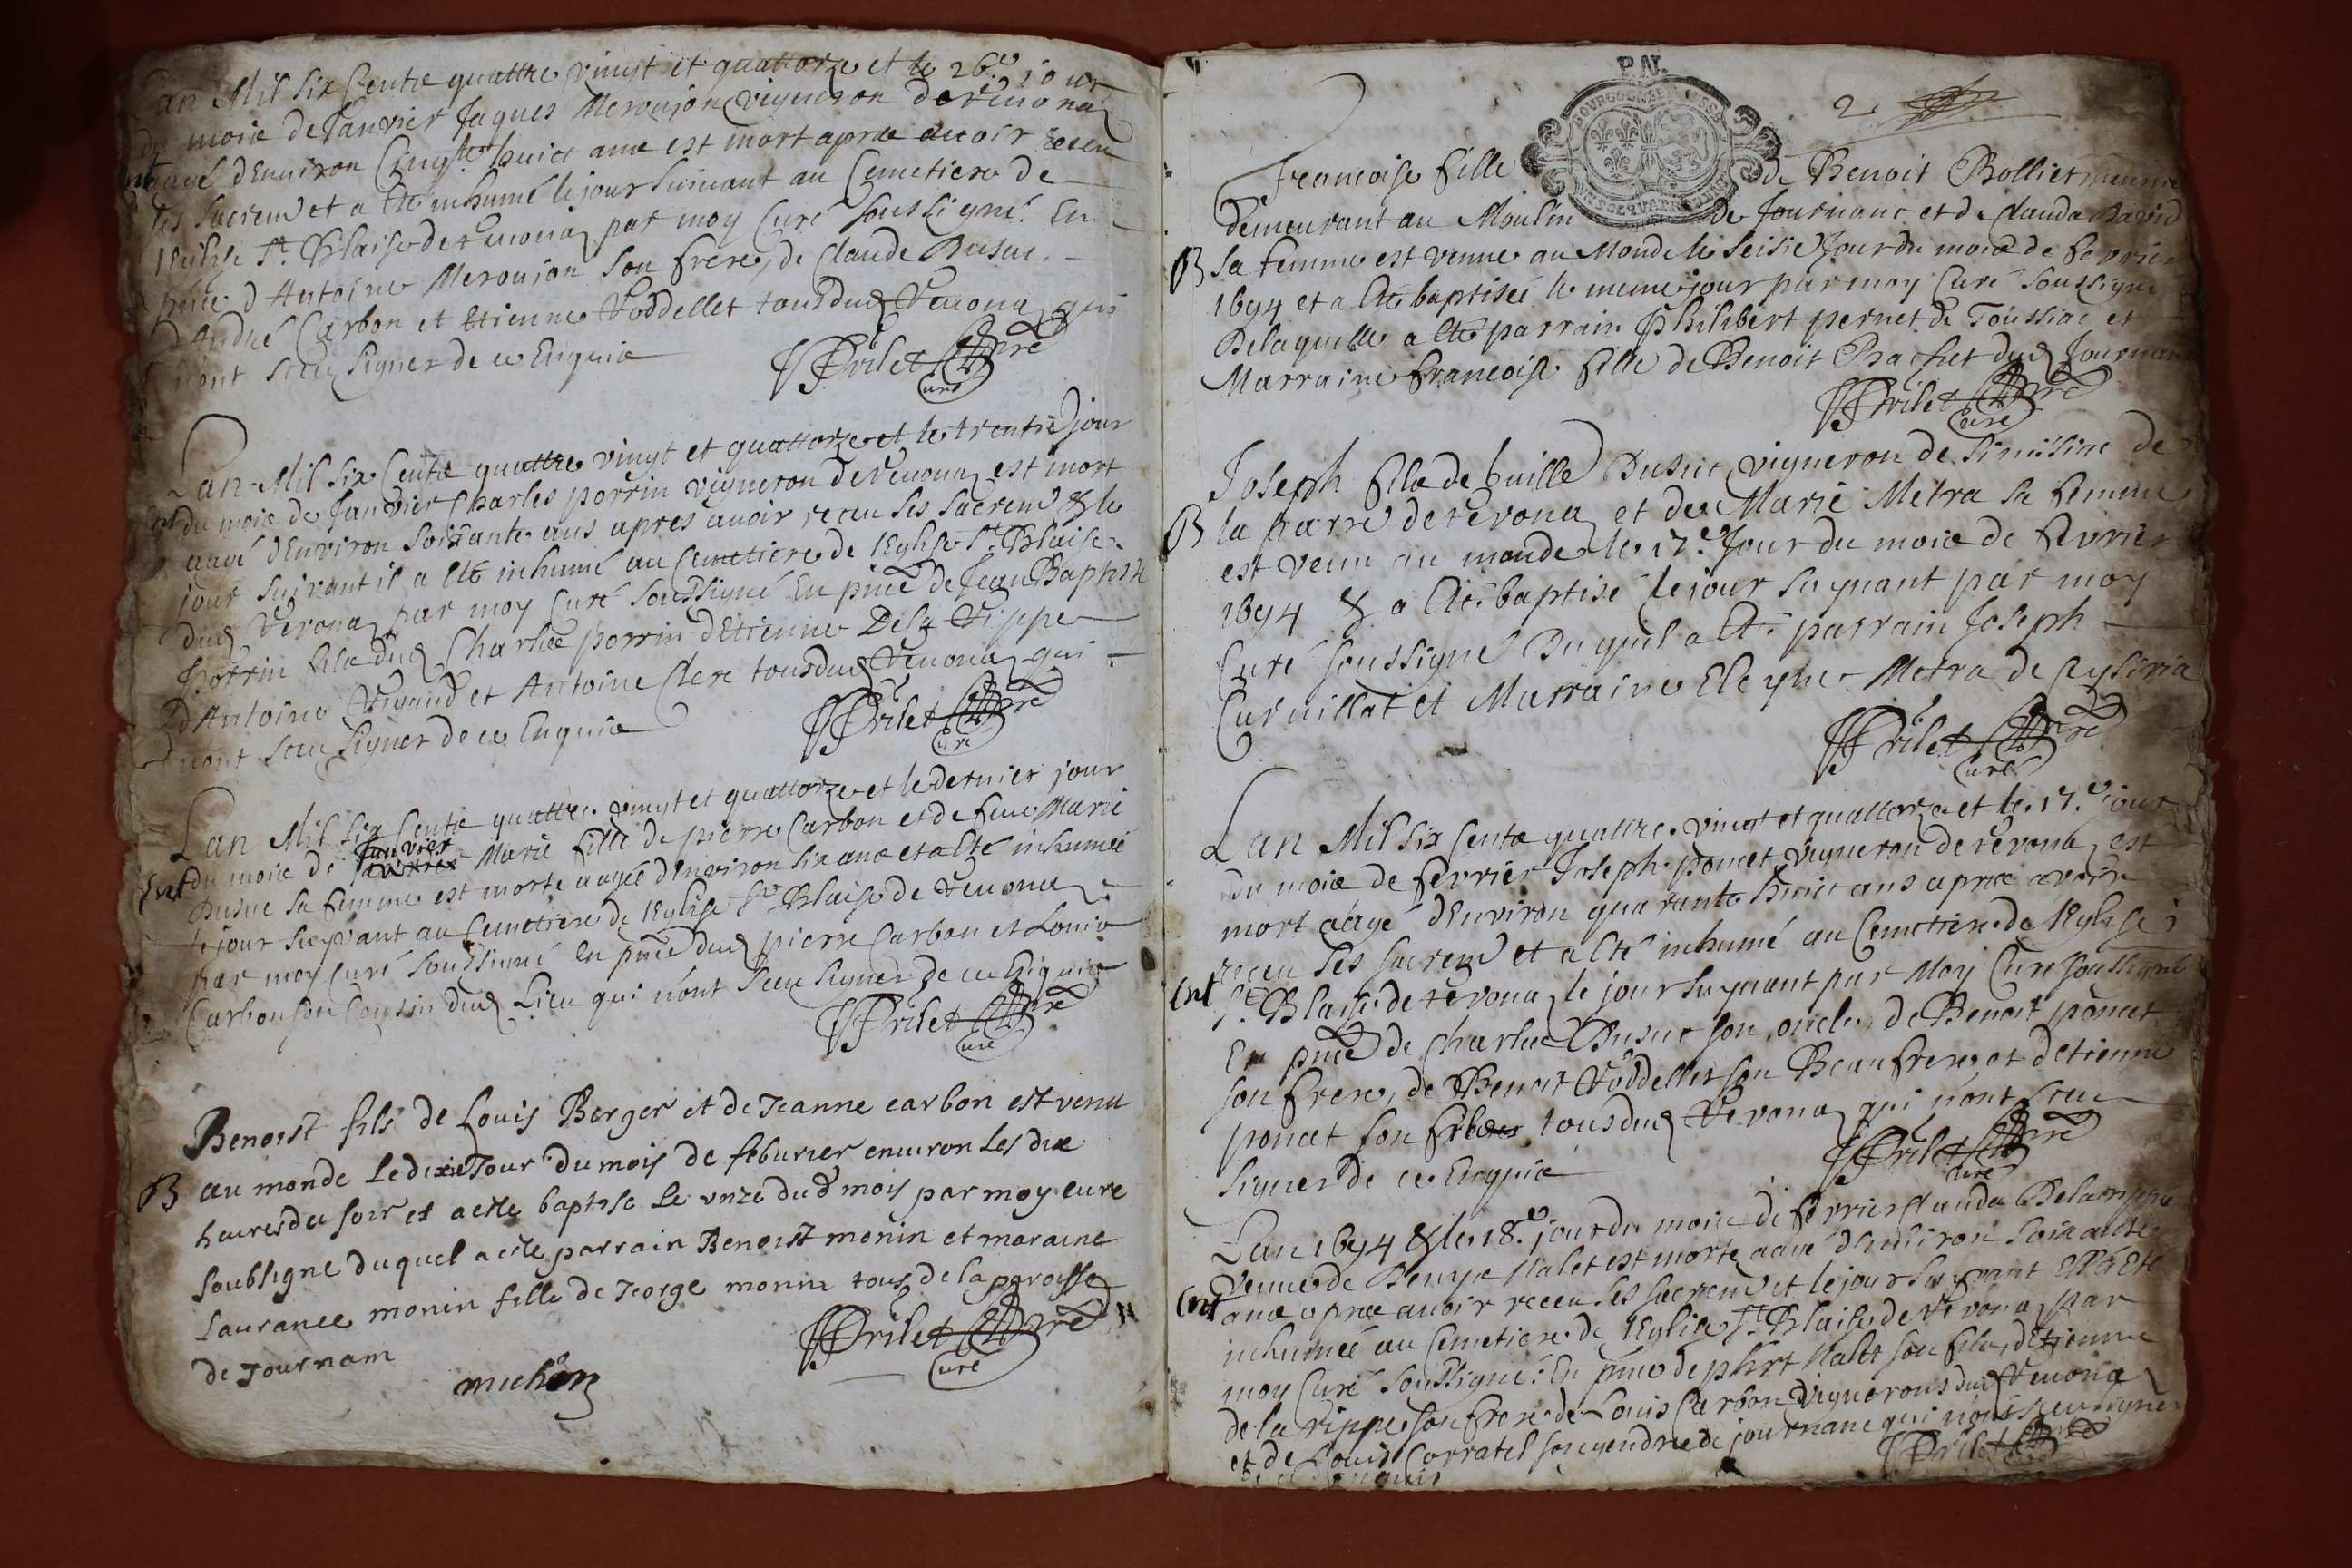 Lan Mil Six Cents quattre vingt et quattorze et le 26.e jour
du mois de Janvier Jaques Meroujon vigneron de Vevona
aagé dEnviron Cinq.te huict ans est mort apres avoir receu
ses sacrem.ts et a Eté inhumé le jour suivant au Cemetiere de
lEglise St. Blaise de Vevona par moy Curé soussigné. En
pnce d'Antoine Meroujon son frere, de Claude Dusuc,
d'André Carbon et Etienne Voddellet tous dud Vevona qui
n'ont sceu signer de ce Enquis
Prilet Pre
Curé
Lan Mil Six Cents quattre vingt et quattorze et le trente jour
Ent
du mois de Janvier Charles porrin vigneron de Vevona est mort
aagé dEnviron soixante ans apres avoir receu ses sacrem.ts & le
jour suivant il a Eté inhumé au Cemetiere de lEglise St. Blaise
dud Vevona par moy Curé soussigné En pnce de Jean Baptiste
porrin fils dud Charles porrin dEtienne Dela Rippe
d'Antoine Vivand et Antoine Clerc tous dud Vevona qui
n'ont sceu signer de ce Enquis
Prilet Pre
Curé
Lan Mil Six Cents quattre vingt et quattorze et le dernier jour
Janvier
Ent
du mois de Marie fille de pierre Carbon et de feue Marie
Dusuc sa femme est morte aagée dEnviron six ans et a Eté inhumée
le jour suyvant au Cemetiere de lEglise St. Blaise de Vevona
par moy Curé soussigné En pnce dud pierre Carbon et Louis
Carbon son Cousin dud Lieu qui n'ont sceu signer de ce Enquis
Prilet Pre
Curé
Benoist fils de Louis Berger et de Jeanne carbon est venu
B
au monde le dixie Jour du mois de feburier environ les dix
heures du soir et a este baptise le unze dud mois par moy cure
soubsigne duquel a este parrain Benoist monin et maraine
Laurance monin fille de Jeorge monin tous de la paroisse
de Journam
Prilet Pre
Curé
P.N.
BOURGOGNE
2
francoise fille de Benoit Bolliet meunier
demeurant au Moulin de Journanc et de Clauda David
B
sa femme est venue au Monde le seisie Jour du mois de fevrier
1694 et a Eté baptisée le meme jour par moy Curé soussigné
De laquelle a Eté parrain Philibert pernet de Toussiac et
Marraine francoise fille de Benoit Brachet dud Journanc
Prilet Pre
Curé
Joseph fils de Guille Dusuc vigneron de simissiac de
B
la parre de revona et de Marie Metra sa femme
est venu au monde le 17.e Jour du mois de fevrier
1694 & a Eté baptisé le jour suyvant par moy
Curé soussigné Duquel a Eté parrain Joseph
Curnillat et Marraine Eleyne Metra de Ceysiria
Prilet Pre
Curé
Lan Mil Six Cents quattre vingt et quattorze et le 17.e jour
du mois de fevrier Joseph poncet vigneron de revona est
mort aagé dEnviron quarante huit ans apres avoir
receu ses sacrem.ts et a Eté inhumé au Cemetiere de lEglise
Ent
St. Blaise de revona le jour suyvant par Moy Curé soussigné
En pnce de Charles Dusuc son oncle, de Benoit poncet
son frere, de Benoit Voddellet son Beaufrere et dEtienne
poncet son fils tous dud Revona qui n'ont sceu
signer de ce Enquis
Prilet Pre
Curé
Lan 1694 & le 18.e jour du mois de fevrier Clauda Delarippe
veuve de Benyn Nalet est morte aagé dEnviron soixante
Ent
ans apres avoir receu ses sacrem.ts et le jour suyvant Ell'a Eté
inhumée au Cemetiere de lEglise St. Blaise de Revona par
moy Curé soussigné: En pnce de phirt Nalet son fils, dEtienne
de la rippe son frere de Louis Carbon vignerons dud Revona
et de Louis Corratel son gendre de journanc qui n'ont sceu signer
de ce Enquis
Prilet Pre